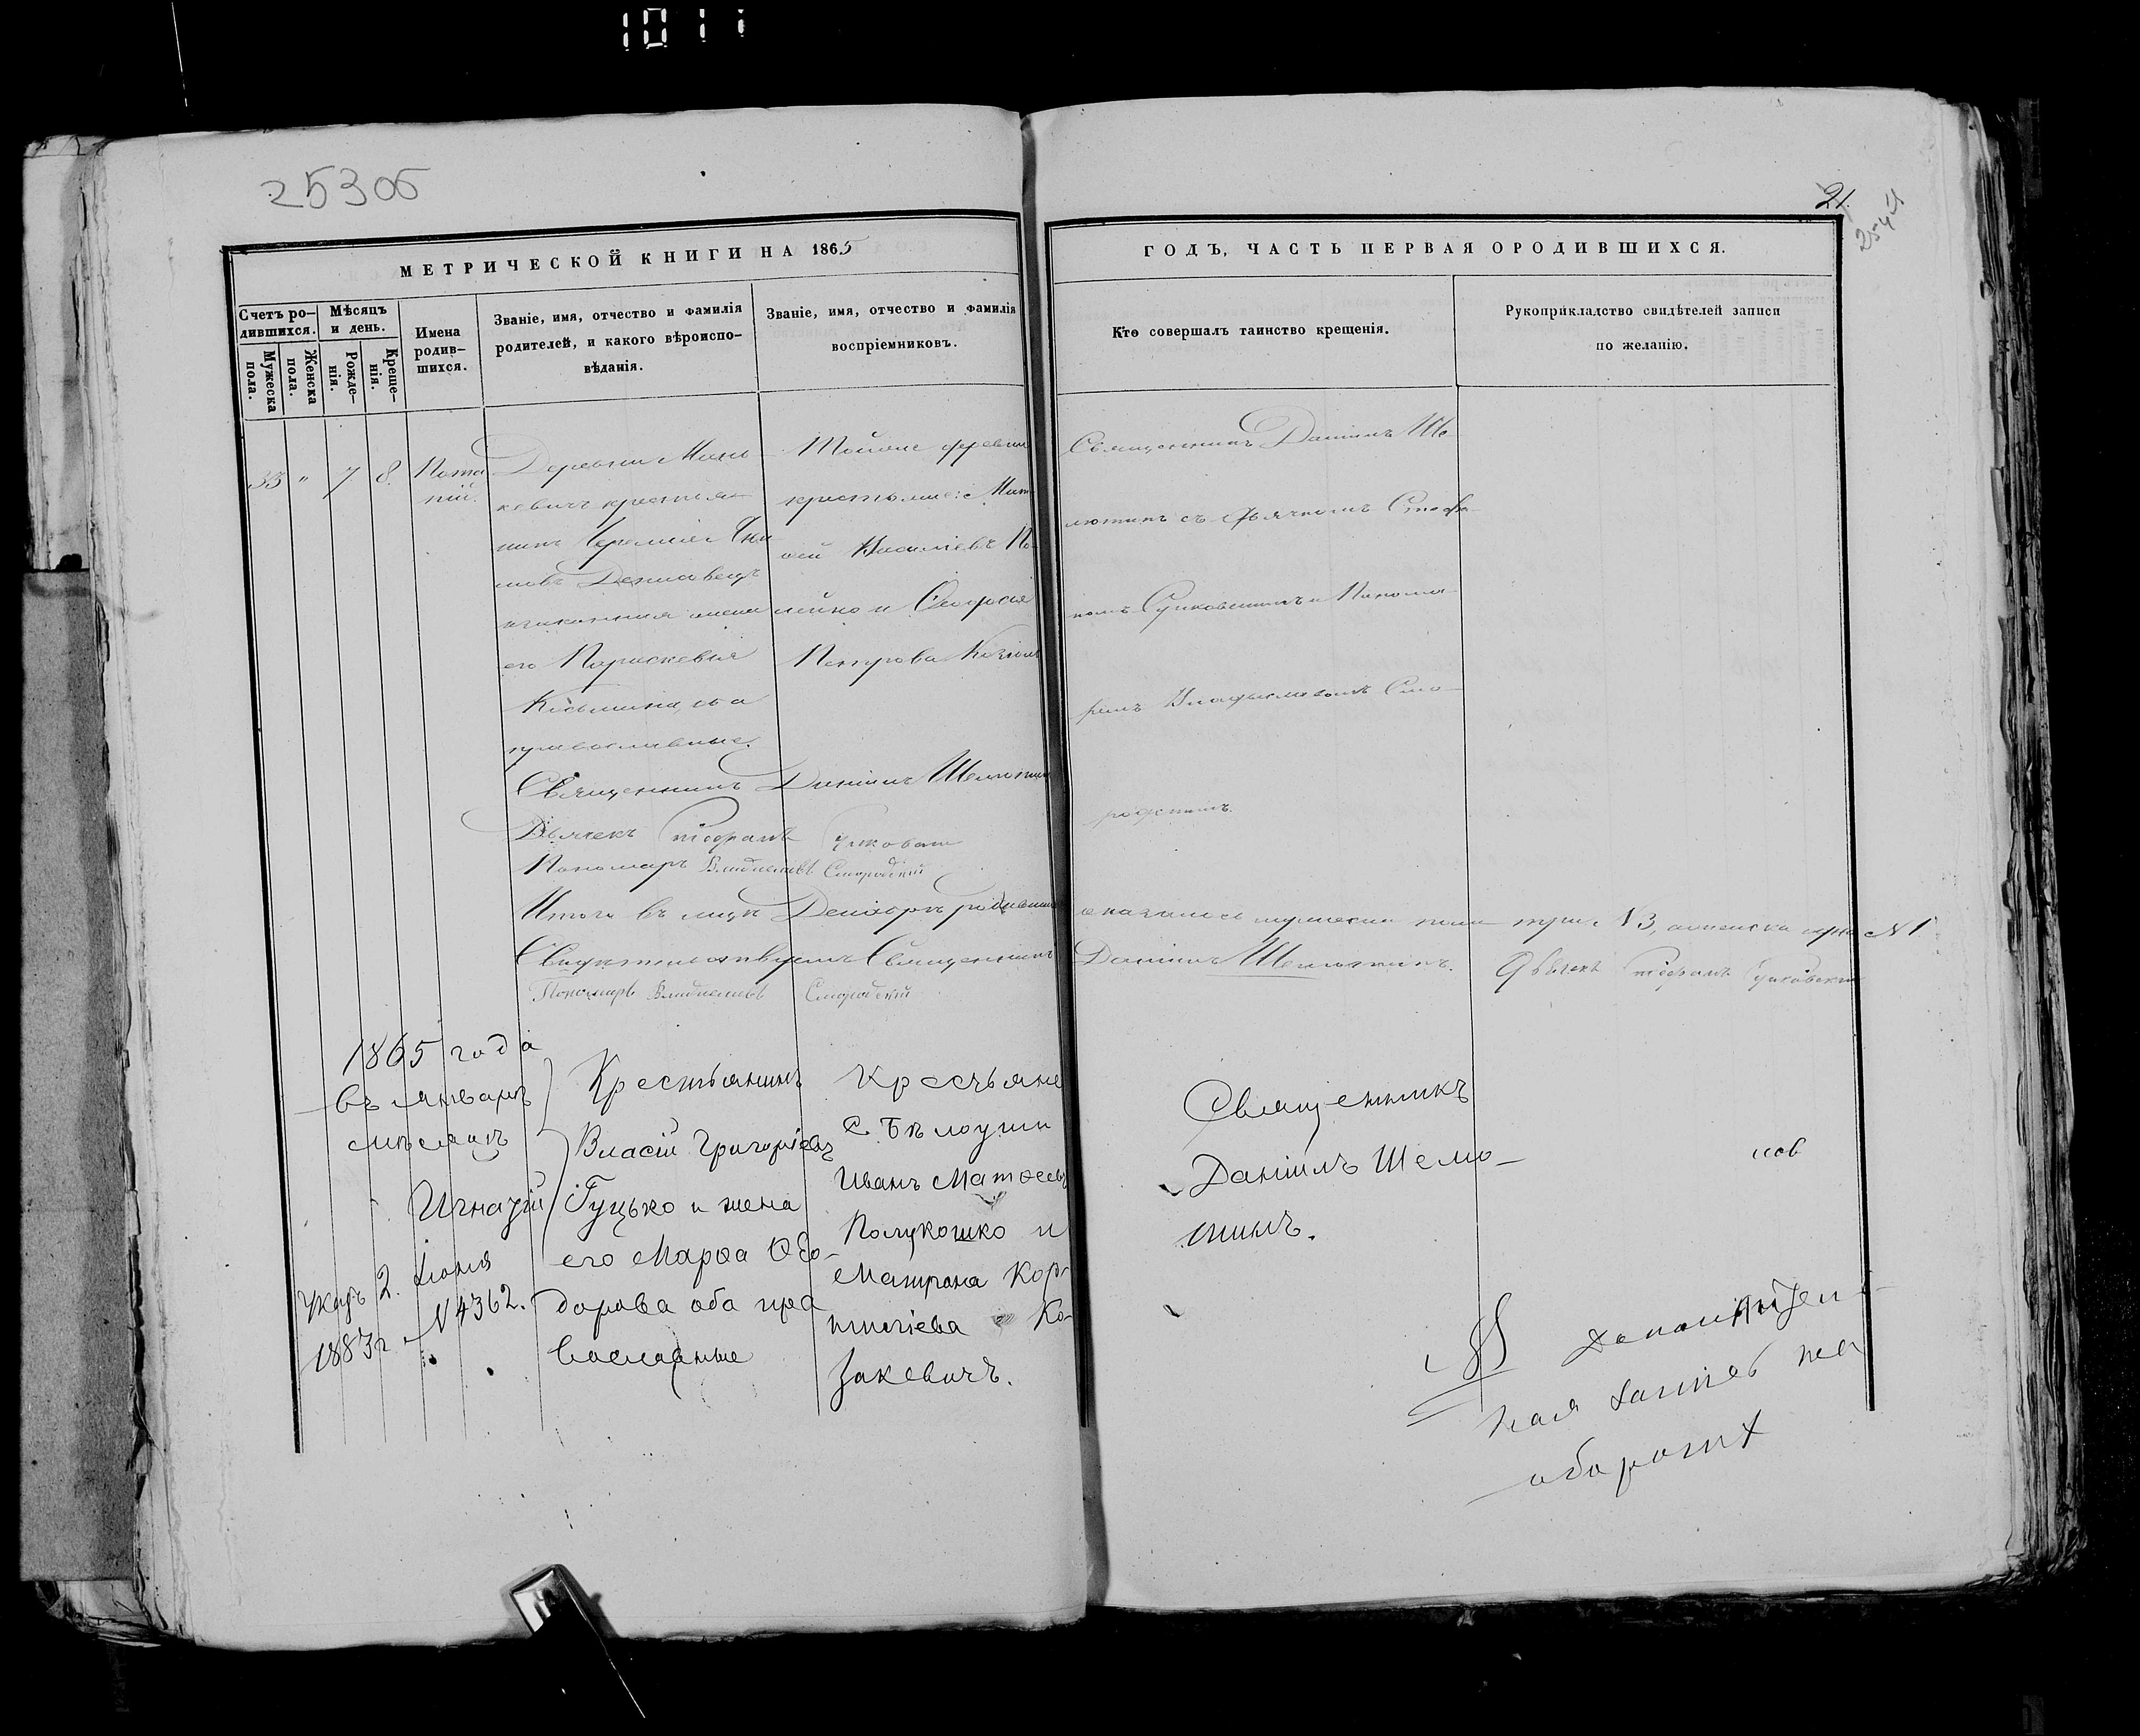 1011
2530б
21.
254
МЕТРИЧЕСКОЙ КНИГИ НА 1865
ГОДЪ, ЧАСТЬ ПЕРВАЯ ОРОДИВШИХСЯ.
Счетъ ро-
дившихся.
Мужеска
пола.
Женска
пола.
Мѣсяцъ
и день.
Рожде-
нія.
Креще-
нія.
Имена
родив-
шихся.
Званіе, имя, отчество и фамилія
родителей, и какого вѣроиспо-
вѣданія.
Званіе, имя, отчество и фамилія
воспріемниковъ.
Кто совершалъ таинство крещенія.
Рукоприкладство свидѣтелей записи
по желанію.
33 " 7 8.
Пота
пій.
Деревни Мань
кевичъ крестья
нинъ Іеремія
законная жена
его Параскевія
Козьмина, оба
православные.
Тойже деревни
крестьяне: Мат
ѳей Василіевъ По
лейко и Евфросія
Петрова
Священникъ Даніилъ Ше
лютинъ съ Дьячкомъ Стефа
номъ Сулковскимъ и Понома
ремъ Владиславомъ Смо
родскимъ.
Священникъ Даніилъ Шелютинъ
Дьячекъ Стефанъ
Пономарь Владиславъ Смородскій
Итого въ мцѣ Декабрѣ родившихся
оказалось мужеска пола три N 3, женска одна N 1
Свидѣтельствуемъ Священникъ
Даніилъ Шелютинъ.
Дьячекъ Стефанъ
Пономарь Владиславъ Смородскій
1865 года
въ январѣ
мѣсяцѣ
Игнатій
Указъ 2. Іюня
1883 г N 4362.
Крестьянинъ
Власій Григоріевъ
Гуцько и жена
его Марѳа Ѳео-
дорова оба пра
вославные
Крестьяне
с. Бѣлоуши
Иванъ Матѳеевъ
Полукошко и
Матрона Кор-
ниліева Ко-
закевичъ.
Священникъ
Даніилъ Шелю-
тинъ.
Дополнитель-
ная запись на
оборотѣ